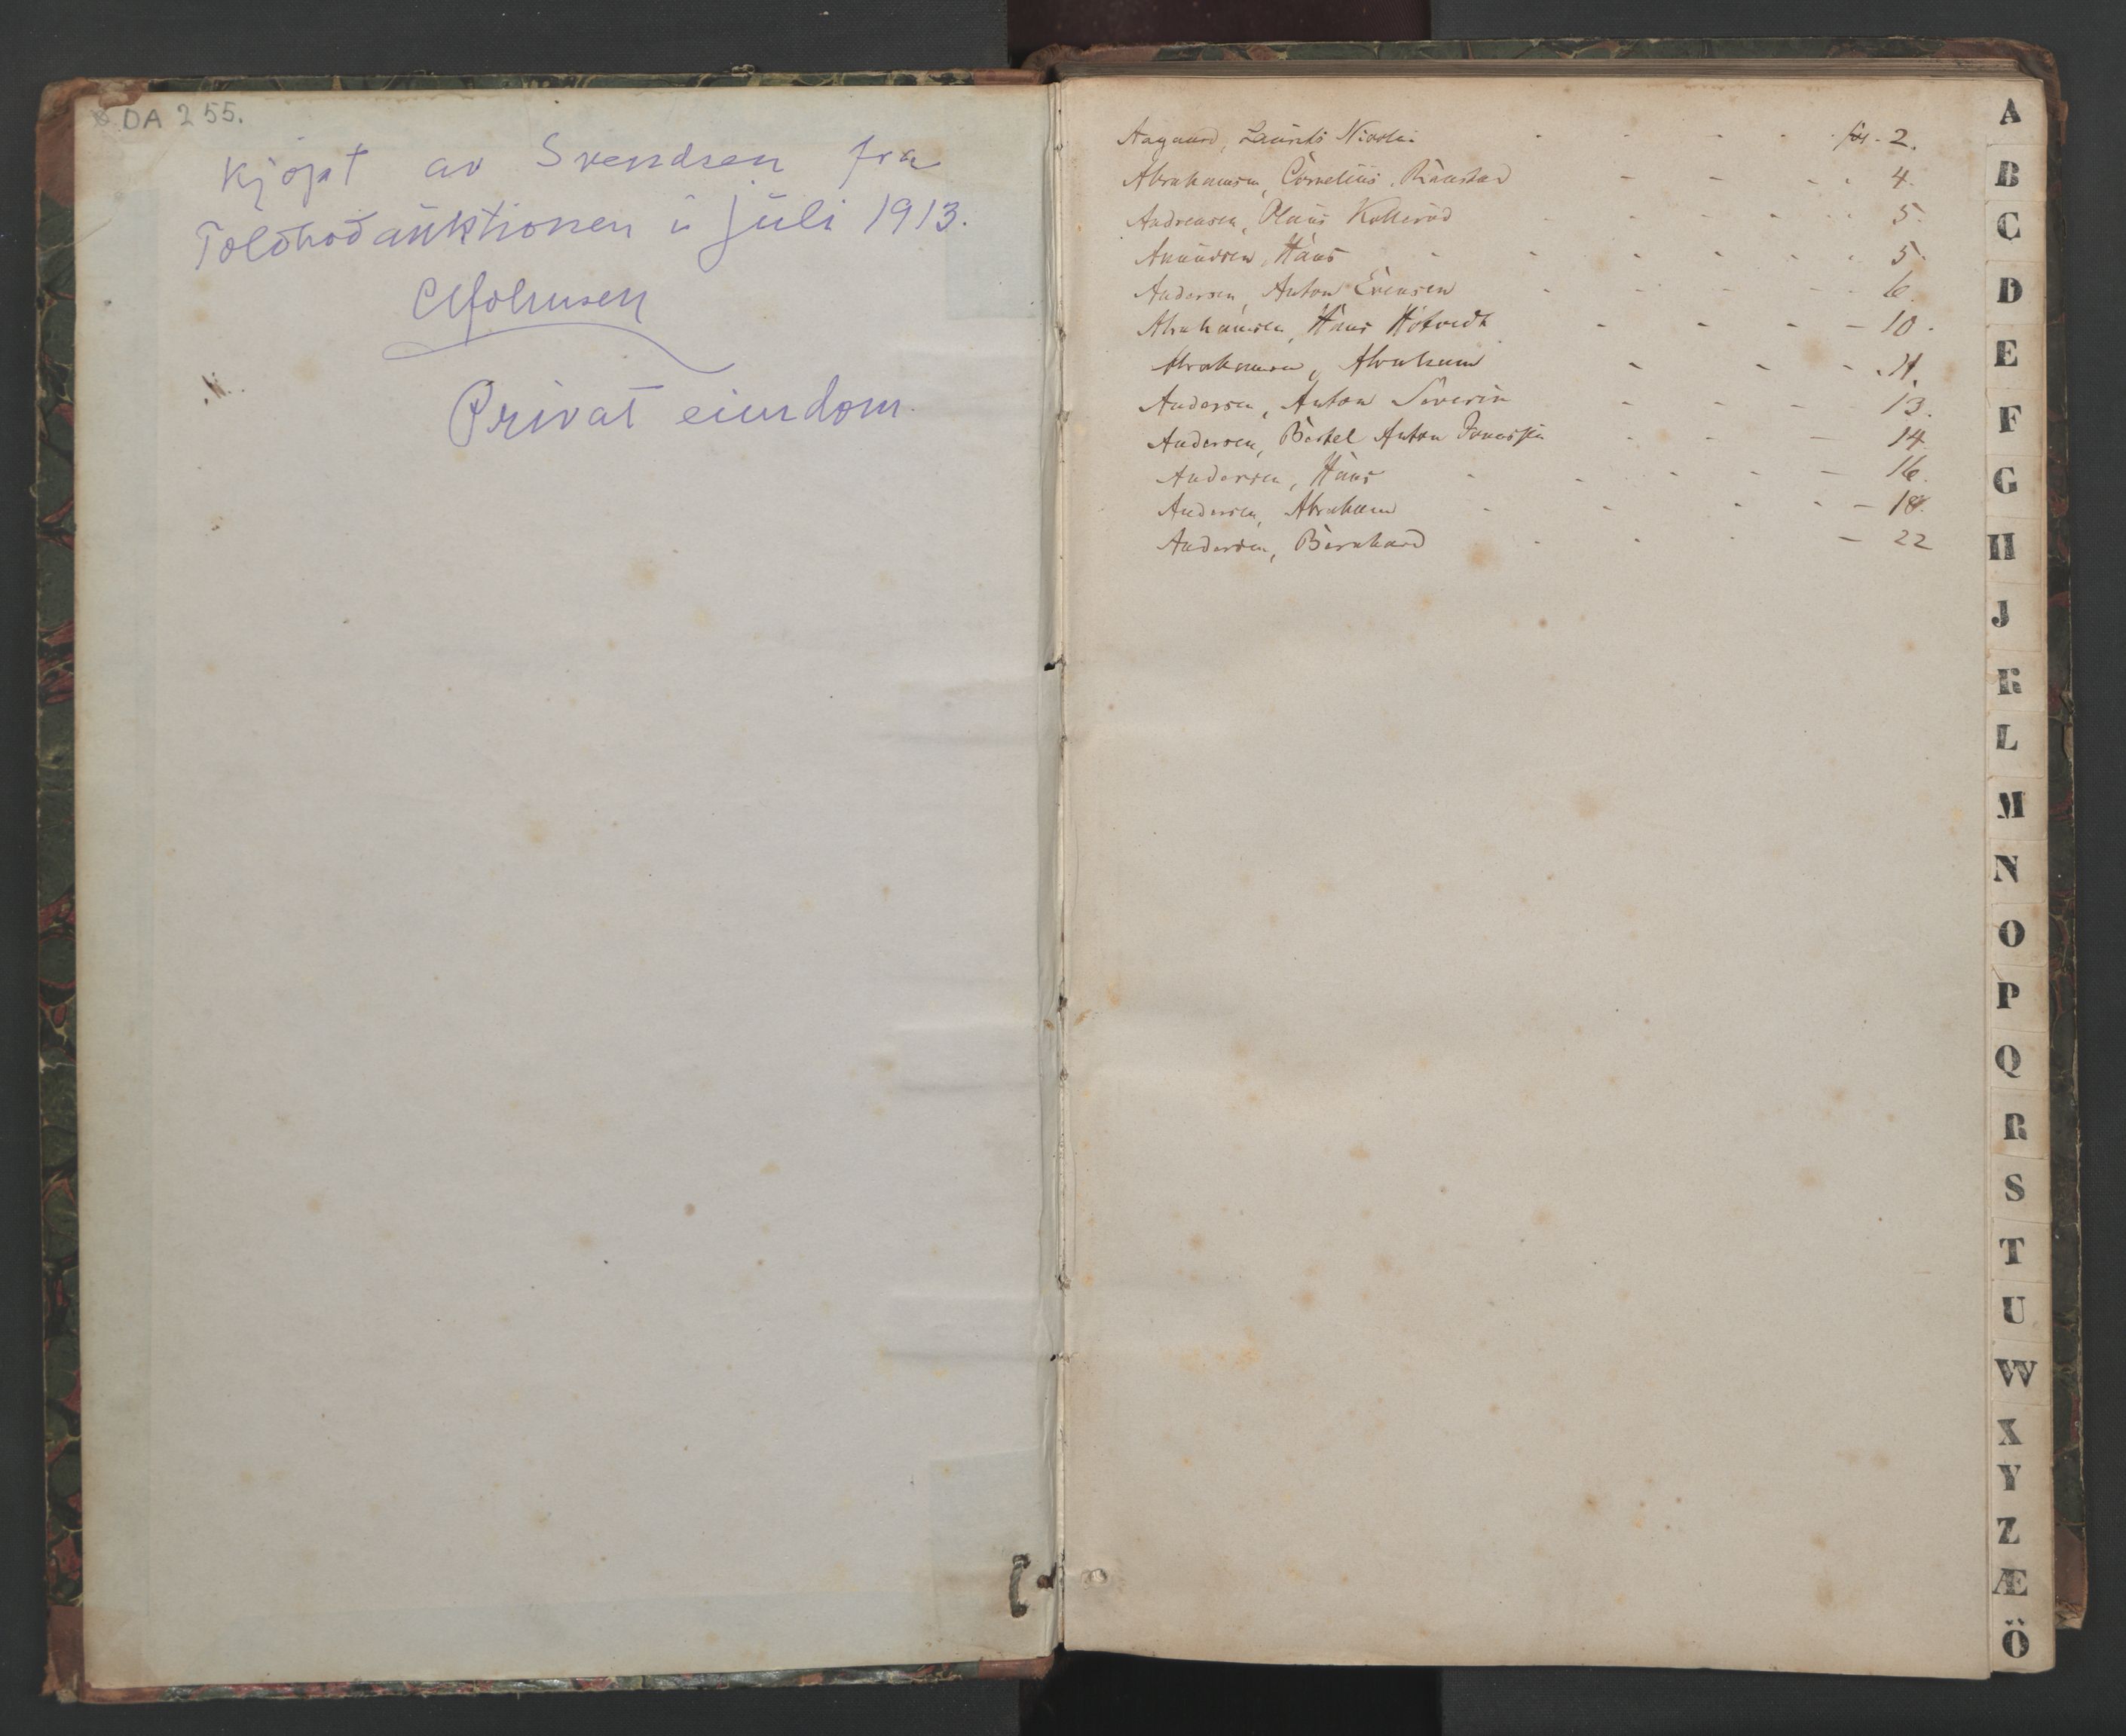 DA 255.
Kjøpt av Svendsen fra
Toldbodauktionen i juli 1913.
Privat eiendom.
Aagaard, Laurits Nicolai - - - - - fol. 2.
Abrahamsen, Cornelius, Ramstad - - - - 4.
Andreasen, Olaus Kollerød - - - - - 5.
Amundsen, Hans - - - - - - 5.
Andersen, Anton Evensen - - - - - 6.
Abrahamsen, Hans Hotvedt - - - - 10.
Abrahamsen, Abraham - - - 11.
Andersen, Anton Severin - - - 13.
Andersen, Bertel Anton Jonassen - - - 14.
Andersen, Hans - - - - - 16.
Andersen, Abraham - - - - - 18.
Andersen, Bernhard - - - - 22
A
B
C
D
E
F
G
H
J
K
L
M
N
O
P
Q
R
S
T
U
W
X
Y
Z
Æ
Ö